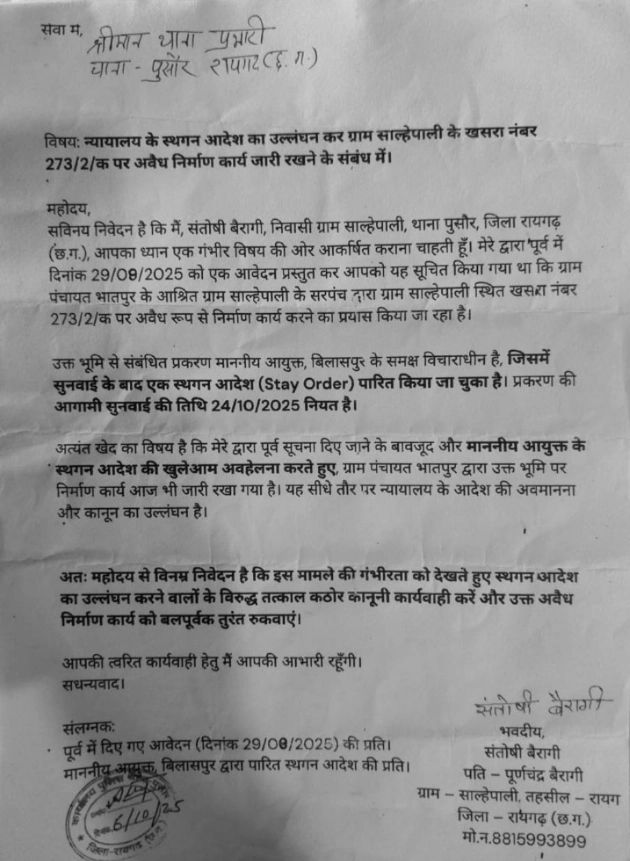 सेवा में,
श्रीमान थाना प्रभारी
थाना - पुसौर रायगढ़ (छ.ग.)
विषय: न्यायालय के स्थगन आदेश का उल्लंघन कर ग्राम साल्हेपाली के खसरा नंबर
273/2/क पर अवैध निर्माण कार्य जारी रखने के संबंध में।
महोदय,
सविनय निवेदन है कि मैं, संतोषी बैरागी, निवासी ग्राम साल्हेपाली, थाना पुसौर, जिला रायगढ़
(छ.ग.), आपका ध्यान एक गंभीर विषय की ओर आकर्षित कराना चाहती हूँ। मेरे द्वारा पूर्व में
दिनांक 29/09/2025 को एक आवेदन प्रस्तुत कर आपको यह सूचित किया गया था कि ग्राम
पंचायत भातपुर के आश्रित ग्राम साल्हेपाली के सरपंच द्वारा ग्राम साल्हेपाली स्थित खसरा नंबर
273/2/क पर अवैध रूप से निर्माण कार्य करने का प्रयास किया जा रहा है।
उक्त भूमि से संबंधित प्रकरण माननीय आयुक्त, बिलासपुर के समक्ष विचाराधीन है, जिसमें
सुनवाई के बाद एक स्थगन आदेश (Stay Order) पारित किया जा चुका है। प्रकरण की
आगामी सुनवाई की तिथि 24/10/2025 नियत है।
अत्यंत खेद का विषय है कि मेरे द्वारा पूर्व सूचना दिए जाने के बावजूद और माननीय आयुक्त के
स्थगन आदेश की खुलेआम अवहेलना करते हुए, ग्राम पंचायत भातपुर द्वारा उक्त भूमि पर
निर्माण कार्य आज भी जारी रखा गया है। यह सीधे तौर पर न्यायालय के आदेश की अवमानना
और कानून का उल्लंघन है।
अतः महोदय से विनम्र निवेदन है कि इस मामले की गंभीरता को देखते हुए स्थगन आदेश
का उल्लंघन करने वालों के विरुद्ध तत्काल कठोर कानूनी कार्यवाही करें और उक्त अवैध
निर्माण कार्य को बलपूर्वक तुरंत रुकवाएं।
आपकी त्वरित कार्यवाही हेतु मैं आपकी आभारी रहूँगी।
सधन्यवाद।
संतोषी बैरागी
भवदीय,
संतोषी बैरागी
पति – पूर्णचंद्र बैरागी
ग्राम – साल्हेपाली, तहसील – रायग
जिला – रायगढ़ (छ.ग.)
मो.न.8815993899
संलग्नक:
पूर्व में दिए गए आवेदन (दिनांक 29/09/2025) की प्रति।
माननीय आयुक्त, बिलासपुर द्वारा पारित स्थगन आदेश की प्रति।
6/10/25
जिला-रायगढ़ (छ.ग.)